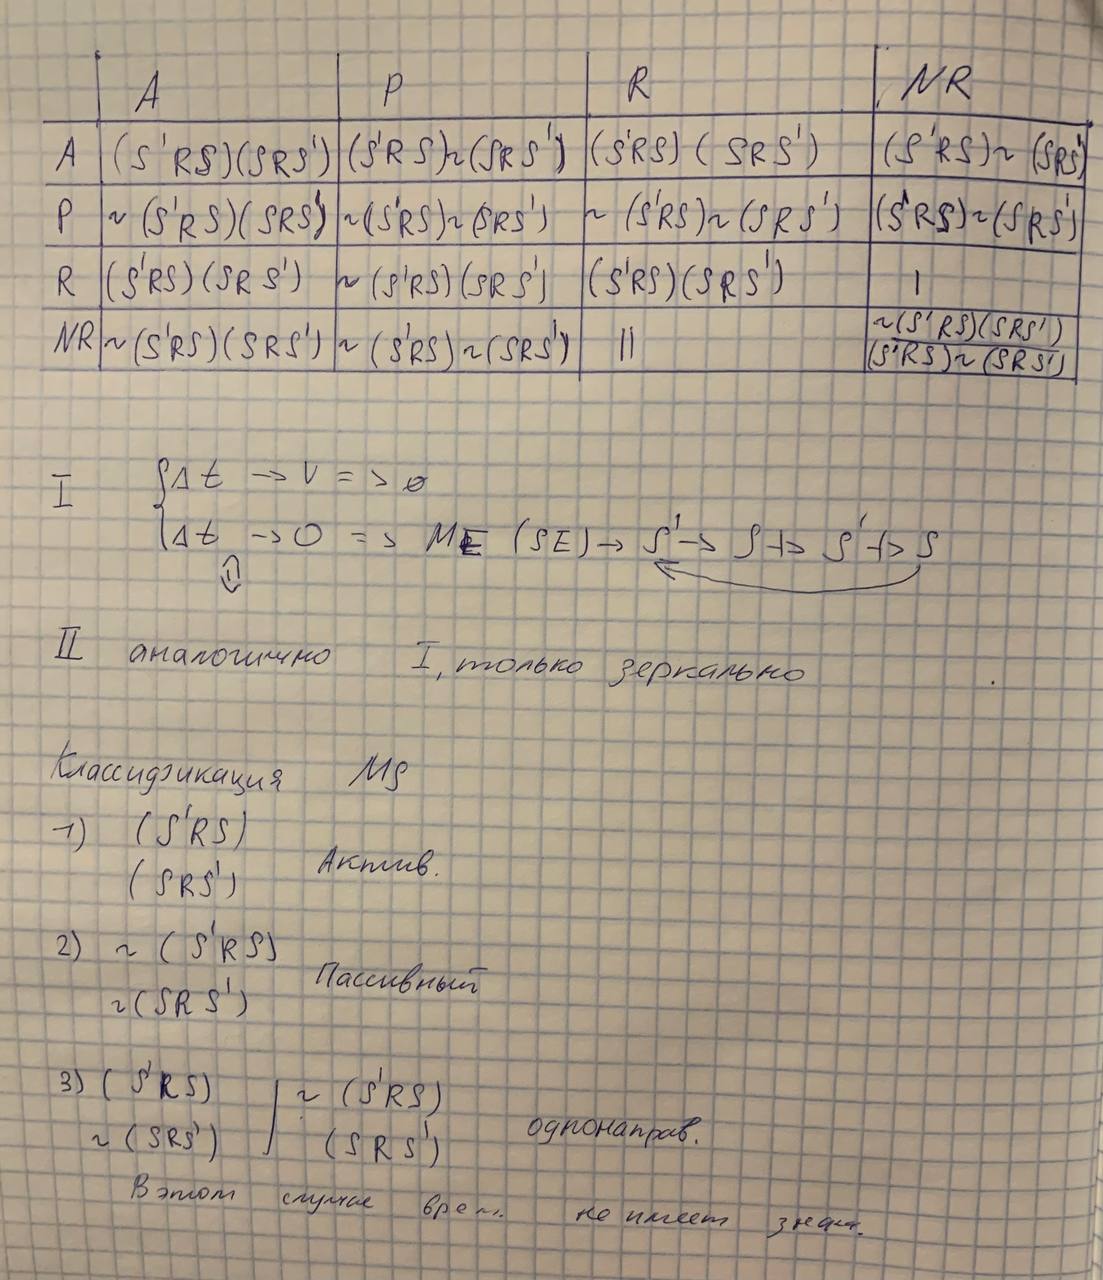 A P R NR
A (S'RS)(SRS') (S'RS)~(SRS') (S'RS)(SRS') (S'RS)~(SRS')
P ~(S'RS)(SRS') ~(S'RS)~(SRS') ~(S'RS)~(SRS') (S'RS)~(SRS')
R (S'RS)(SRS') ~(S'RS)(SRS') (S'RS)(SRS') I
NR ~(S'RS)(SRS') ~(S'RS)~(SRS') II ~(S'RS)(SRS')
(S'RS)~(SRS')
I {Δt → V => ∅
{Δt → 0 => ME (SE) → S' → S +> S' +> S
⇕
II аналогично I, только зеркально
Классификация MS
1) (S'RS)
(SRS') Актив.
2) ~(S'RS)
~(SRS') Пассивный
3) (S'RS) / ~(S'RS)
~(SRS') (SRS') однонаправ.
В этом случае врем. не имеет знач.